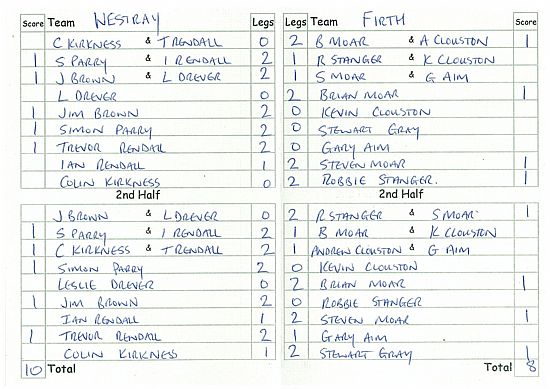 Score Team WESTRAY Legs Legs Team FIRTH Score
C KIRKNESS & T RENDALL 0 2 B MOAR & A CLOUSTON 1
1 S PARRY & I RENDALL 2 1 R STANGER & K CLOUSTON
1 J BROWN & L DREVER 2 1 S MOAR & G AIM
L DREVER 0 2 BRIAN MOAR 1
1 JIM BROWN 2 0 KEVIN CLOUSTON
1 SIMON PARRY 2 0 STEWART GRAY
1 TREVOR RENDALL 2 0 GARY AIM
IAN RENDALL 1 2 STEVEN MOAR 1
COLIN KIRKNESS 0 2 ROBBIE STANGER. 1
2nd Half 2nd Half
J BROWN & L DREVER 0 2 R STANGER & S MOAR 1
1 S PARRY & I RENDALL 2 1 B MOAR & K CLOUSTON
1 C KIRKNESS & T RENDALL 2 1 ANDREW CLOUSTON & G AIM
1 SIMON PARRY 2 0 KEVIN CLOUSTON
LESLIE DREVER 0 2 BRIAN MOAR 1
1 JIM BROWN 2 0 ROBBIE STANGER
IAN RENDALL 1 2 STEVEN MOAR 1
1 TREVOR RENDALL 2 1 GARY AIM
COLIN KIRKNESS 1 2 STEWART GRAY 1
10 Total Total 8